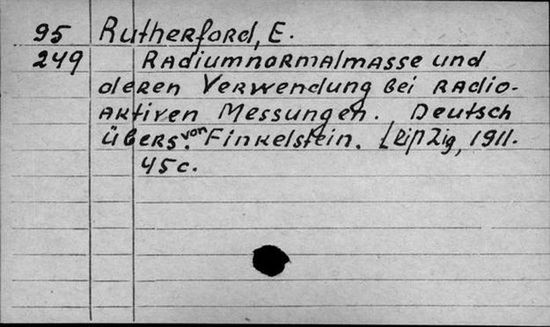 95 Rutherford, E.
249 Radiumnormalmasse und
deren Verwendung bei radio-
aktiven Messungen. Deutsch
übers. von Finkelstein. Leipzig, 1911.
45c.